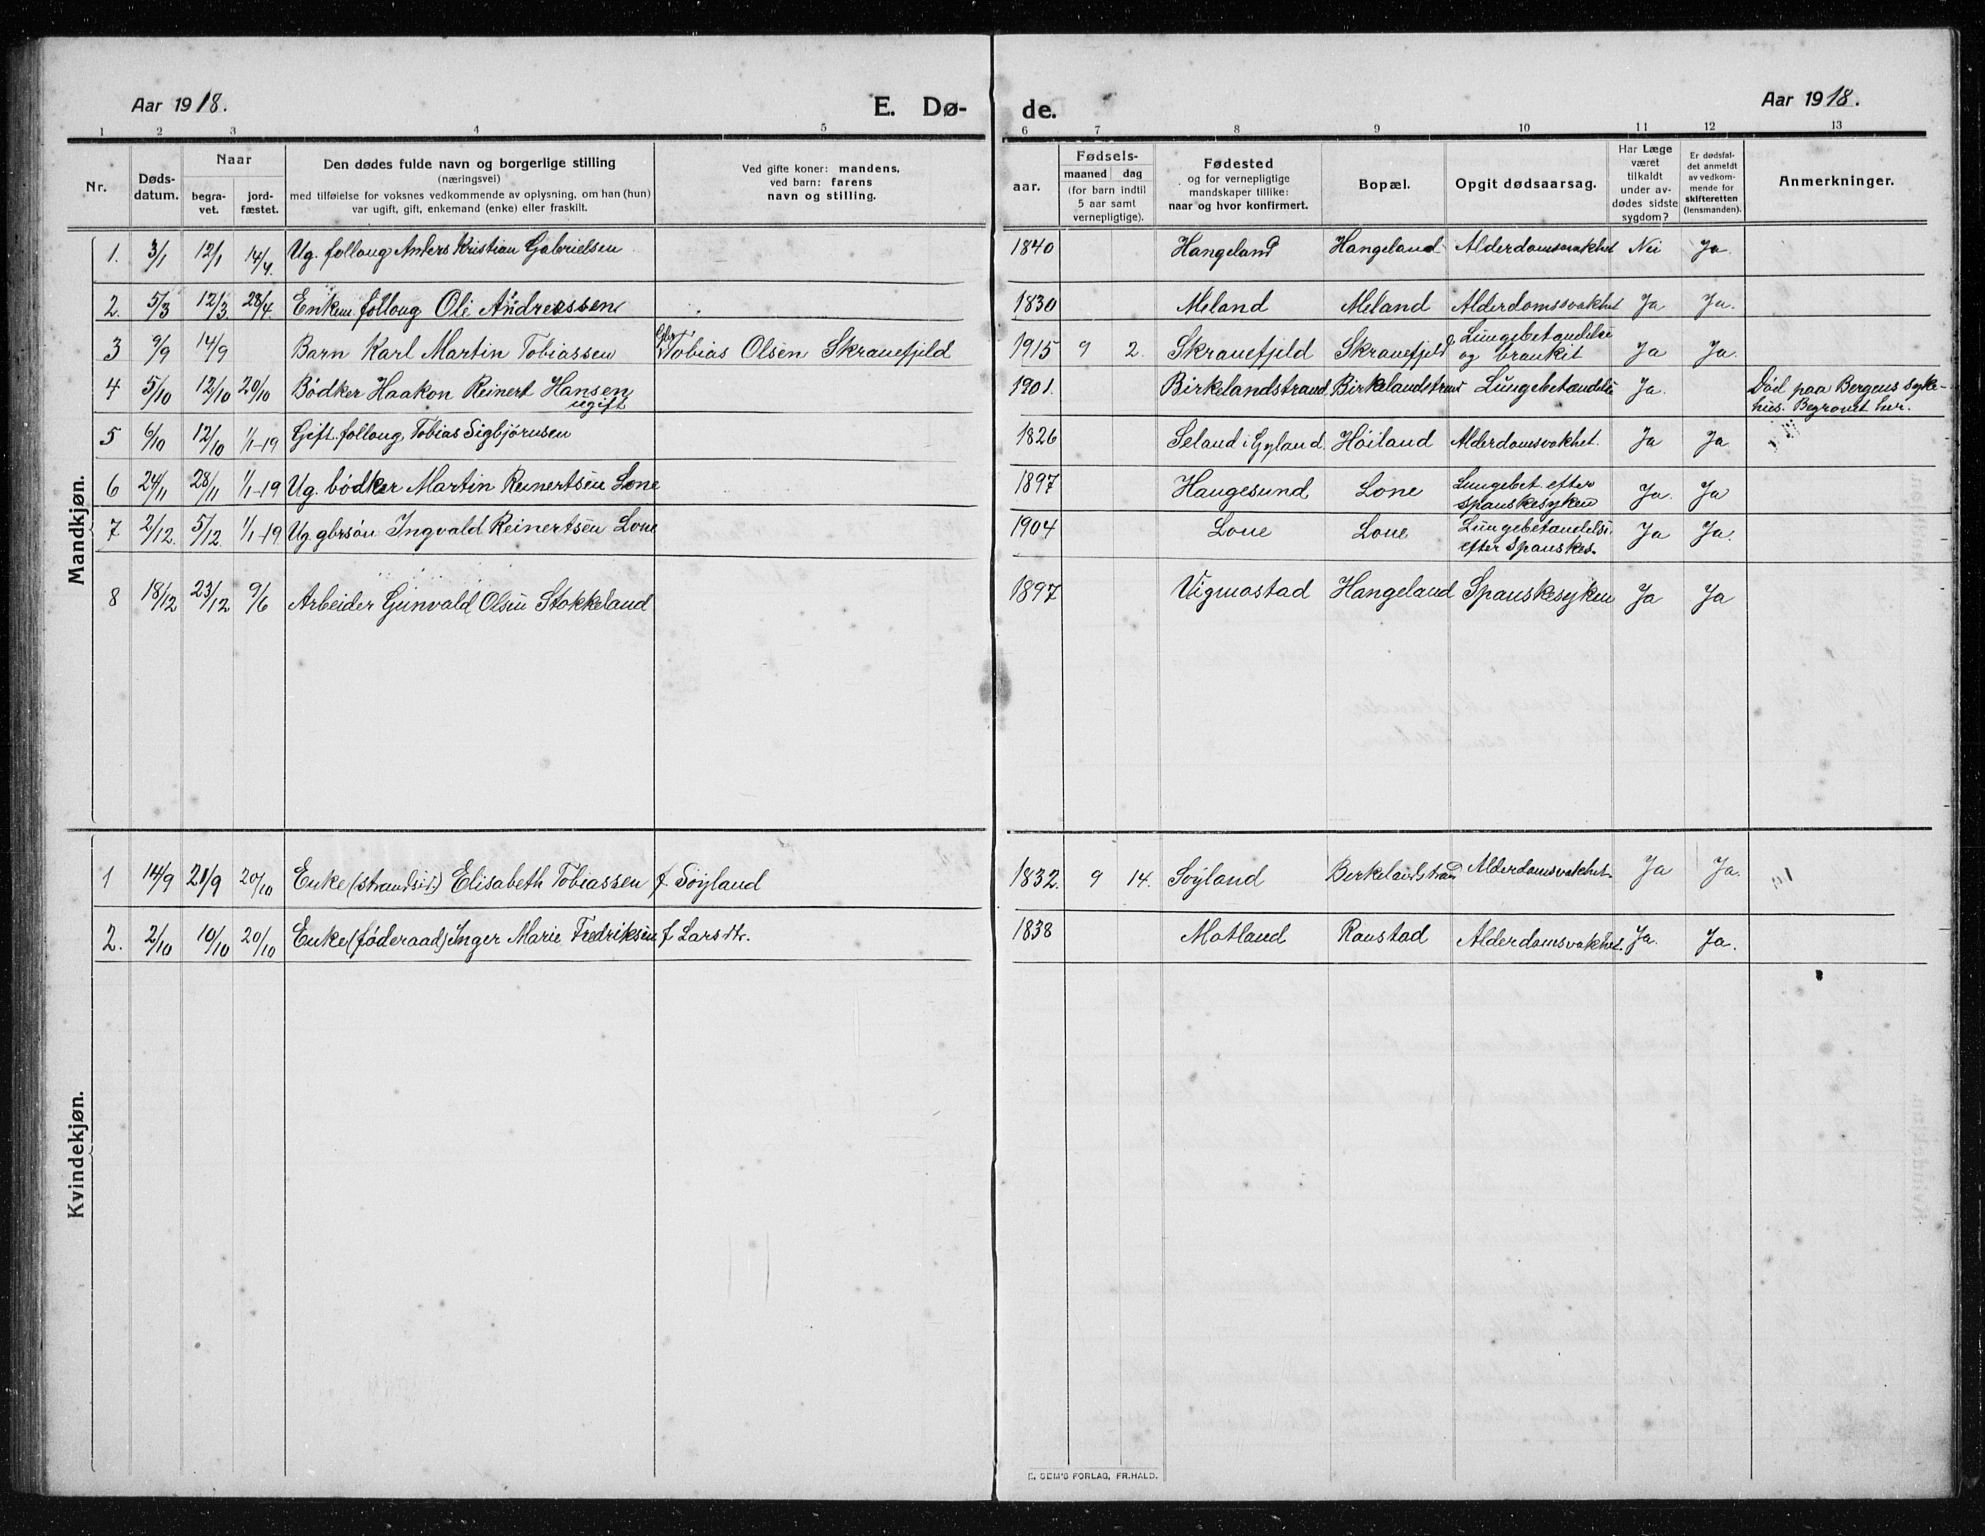 Aar 1918.
E. Dø-
de.
Aar 1918.
1 2 3 4 5 6 7 8 9 10 11 12 13
Nr.
Døds-
datum.
Naar
begra-
vet.
jord-
fæstet.
Den dødes fulde navn og borgerlige stilling
(næringsvei)
med tilføielse for voksnes vedkommende av oplysning, om han (hun)
var ugift, gift, enkemand (enke) eller fraskilt.
Ved gifte koner: mandens,
ved barn: farens
navn og stilling.
aar.
Fødsels-
maaned dag
(for barn indtil
5 aar samt
vernepligtige).
Fødested
og for vernepligtige
mandskaper tillike:
naar og hvor konfirmert.
Bopæl.
Opgit dødsaarsag.
Har Læge
været
tilkaldt
under av-
dødes sidste
sygdom?
Er dødsfal-
det anmeldt
av vedkom-
mende for
skifteretten
(lensmanden).
Anmerkninger.
Mandkjøn.
1. 3/1 12/1 14/4. Ug. follaug Anders Kristian Gabrielsen 1840 Hangeland Hangeland Alderdomssvakhet Nei Ja
2. 5/3 12/3 28/4. Enkem. follaug Ole Andreassen 1830 Meland Meland Alderdomssvakhet Ja Ja.
3 9/9 14/9 Barn Karl Martin Tobiassen Tobias Olsen Skranefjeld 1915 9 2. Skranefjeld Skranefjeld Lungebetændelse
og bronkit Ja Ja.
4 5/10 12/10 20/10 Bödker Haakon Reinert Hansen
ugift 1901. Birkelandstrand Birkelandstrand Lungebetændelse Ja. Död paa Bergens syke-
hus. Begravet her.
5 6/10 12/10 1/1-19 Gift follaug Tobias Sigbjörnsen 1826 Seland i Gyland. Höiland Alderdomsvakhet. Ja Ja
6 24/11 28/11 1/1-19 Ug. bödker Martin Reinertsen Lone 1897 Haugesund Lone Lungebet. efter
spanskesyken Ja. Ja
7 2/12. 5/12. 1/1-19 Ug. gbrsön Ingvald Reinertsen Lone 1904 Lone Lone Lungebetændelse
efter Spanskes. Ja Ja.
8 18/12 23/12 9/6 Arbeider Gunvald Olsen Stokkeland 1897 Vigmostad Hangeland Spanskesyken Ja Ja
Kvindekjøn.
1 14/9 21/9 20/10 Enke (strandsit.) Elisabeth Tobiassen f. Söyland 1832. 9 14. Söyland Birkelandstrand Alderdomsvakhet. Ja Ja.
2. 2/10 10/10 20/10 Enke (föderaad) Inger Marie Fredriksen f Larsdtr. 1838 Motland Ranstad Alderdomsvakhet. Ja. Ja.
E. SEM'S FORLAG, FR.HALD.